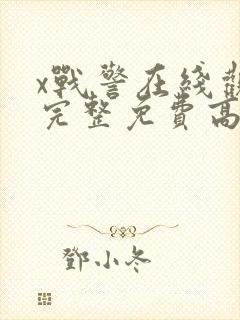 x戰警在綫觀
完整免費高
鄧小冬